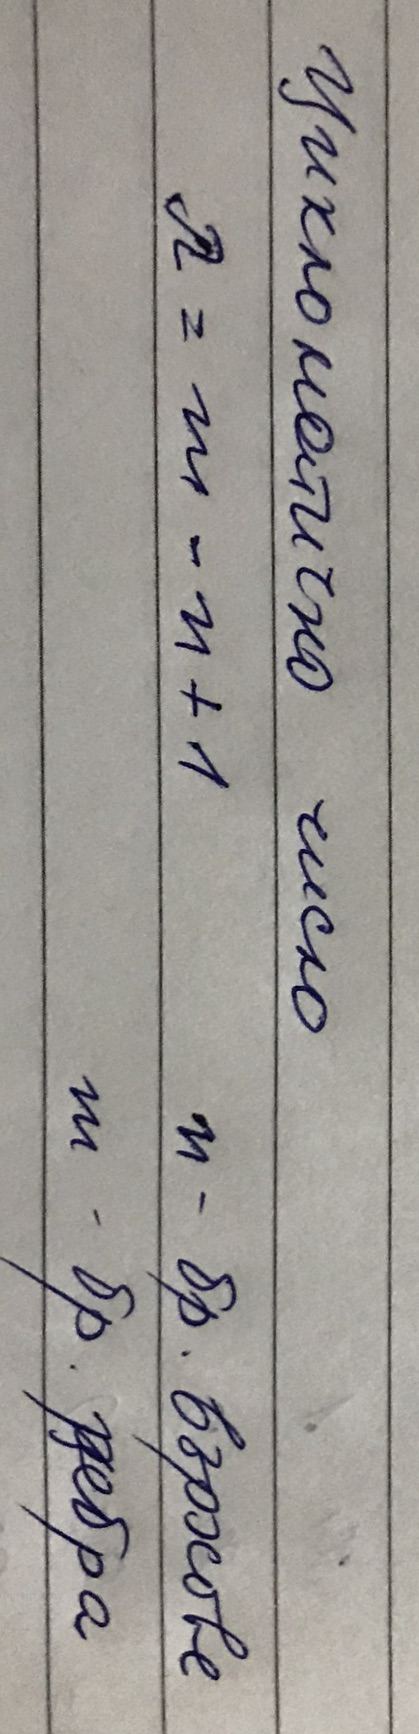 Цикломатично число
λ = m - n + 1 n - бр. възлове
m - бр. ребра